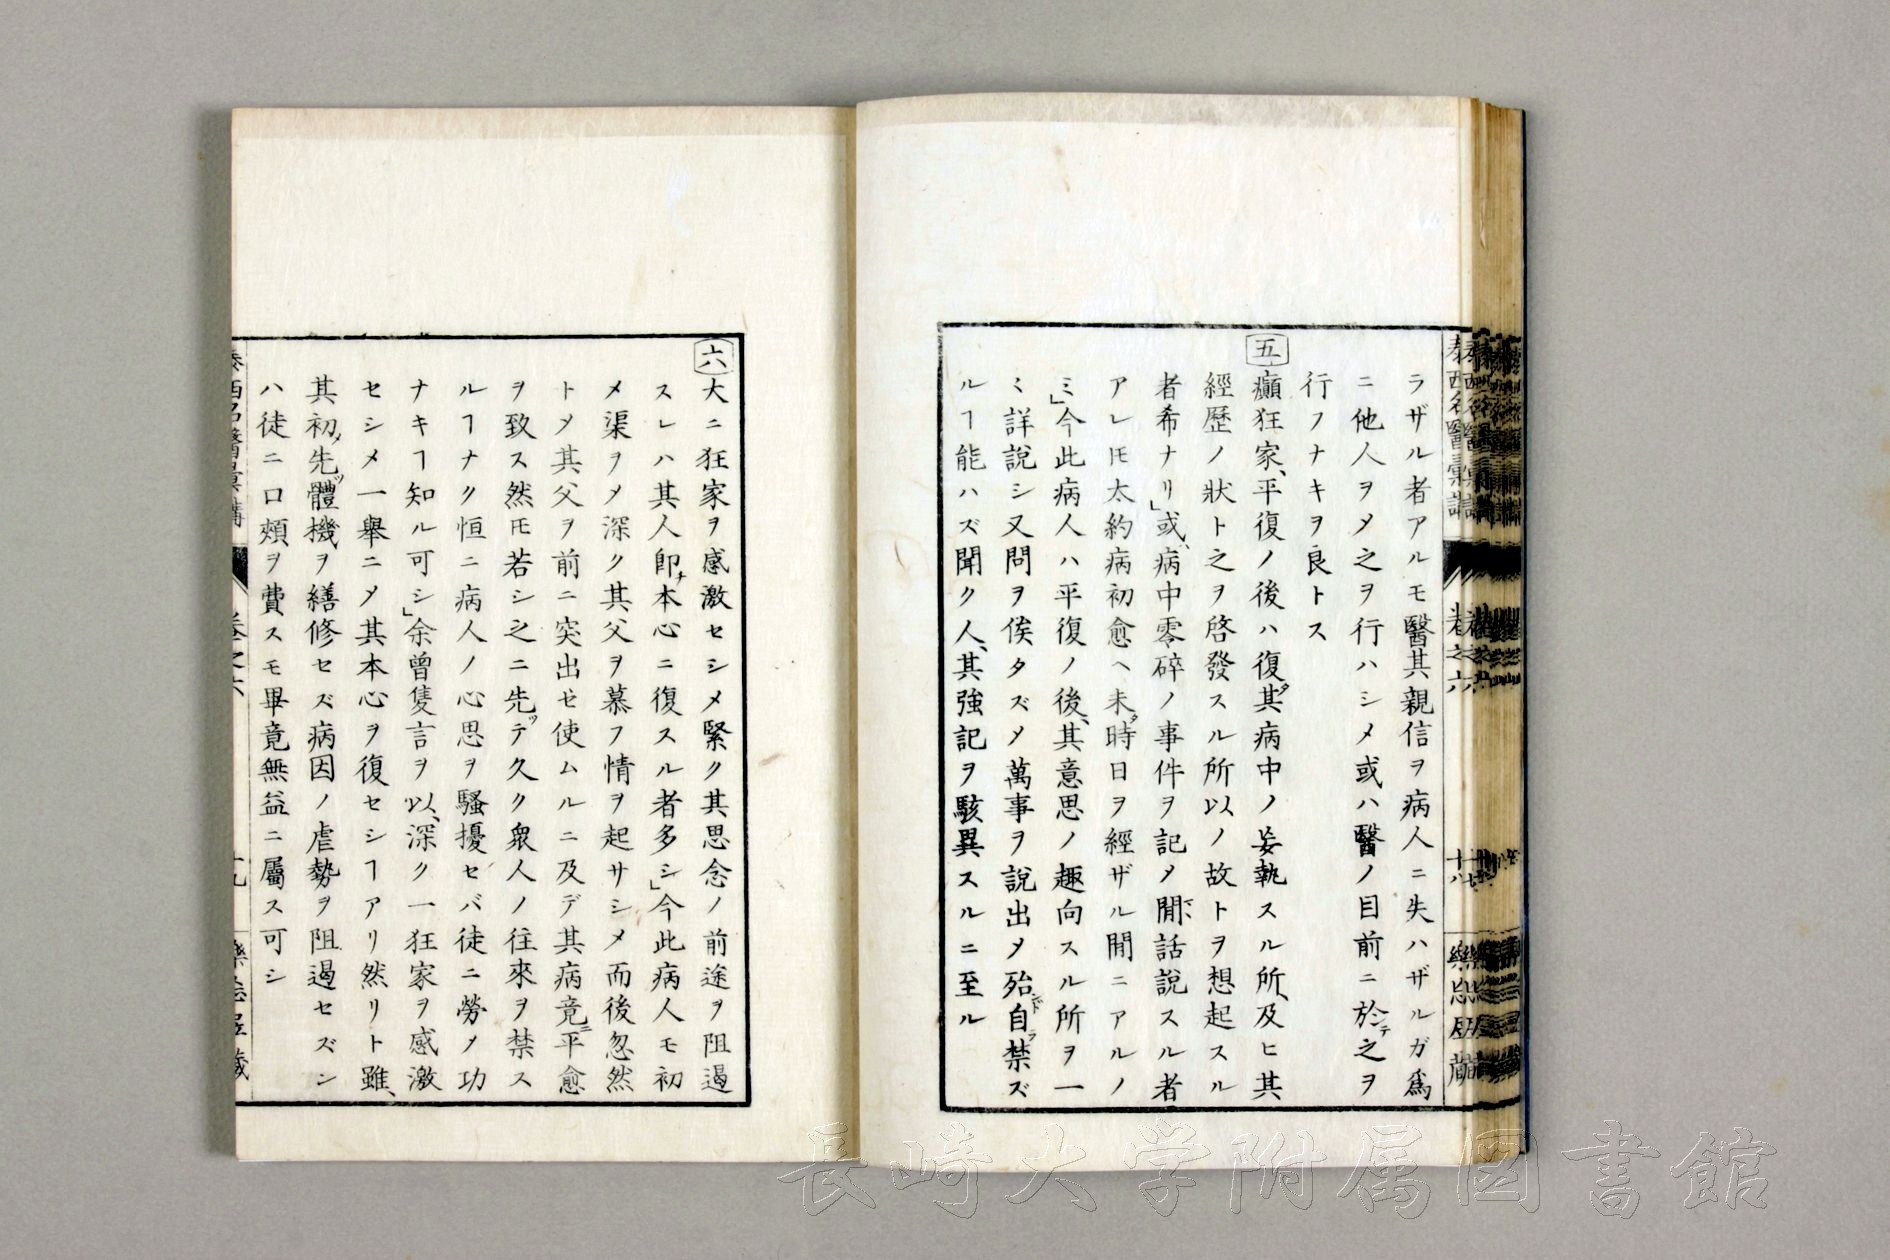 ラザル者アルモ醫其親信ヲ病人ニ失ハザルガ爲
ニ他人ヲメ之ヲ行ハシメ或ハ醫ノ目前ニ於テ之ヲ
行フナキヲ良トス
五
癲狂家、平復ノ後ハ復タ其病中ノ妄執スル所、及ヒ其
經歷ノ狀ト之ヲ啓發スル所以ノ故トヲ想起スル
者希ナリ」或、病中零碎ノ事件ヲ記メ閒話說スル者
アレ𪜈太約病初愈ヘ未タ時日ヲ經ザル閒ニアルノ
ミ」今此病人ハ平復ノ後、其意思ノ趣向スル所ヲ一
〻詳說シ又問ヲ俟タズメ萬事ヲ說出メ殆ント自ラ禁ズ
ルヿ能ハズ聞ク人、其強記ヲ駭異スルニ至ル
泰西名醫彙講
卷之六
十八
六
大ニ狂家ヲ感激セシメ緊ク其思念ノ前途ヲ阻遏
スレハ其人卽チ本心ニ復スル者多シ」今此病人モ初
メ渠ヲメ深ク其父ヲ慕フ情ヲ起サシメ而後忽然
トメ其父ヲ前ニ突出セ使ムルニ及デ其病竟ニ平愈
ヲ致ス然𪜈若シ之ニ先ツテ久ク衆人ノ往來ヲ禁ス
ルヿナク恒ニ病人ノ心思ヲ騷擾セバ徒ニ勞メ功
ナキヿ知ル可シ」余曾隻言ヲ以、深ク一狂家ヲ感激
セシメ一舉ニメ其本心ヲ復セシヿアリ然リト雖、
其初メ先ツ體機ヲ繕修セズ病因ノ虐勢ヲ阻遏セズン
ハ徒ニ口頰ヲ費スモ畢竟無益ニ屬ス可シ
泰西名醫彙講
卷之六
十九
長崎大学附属図書館